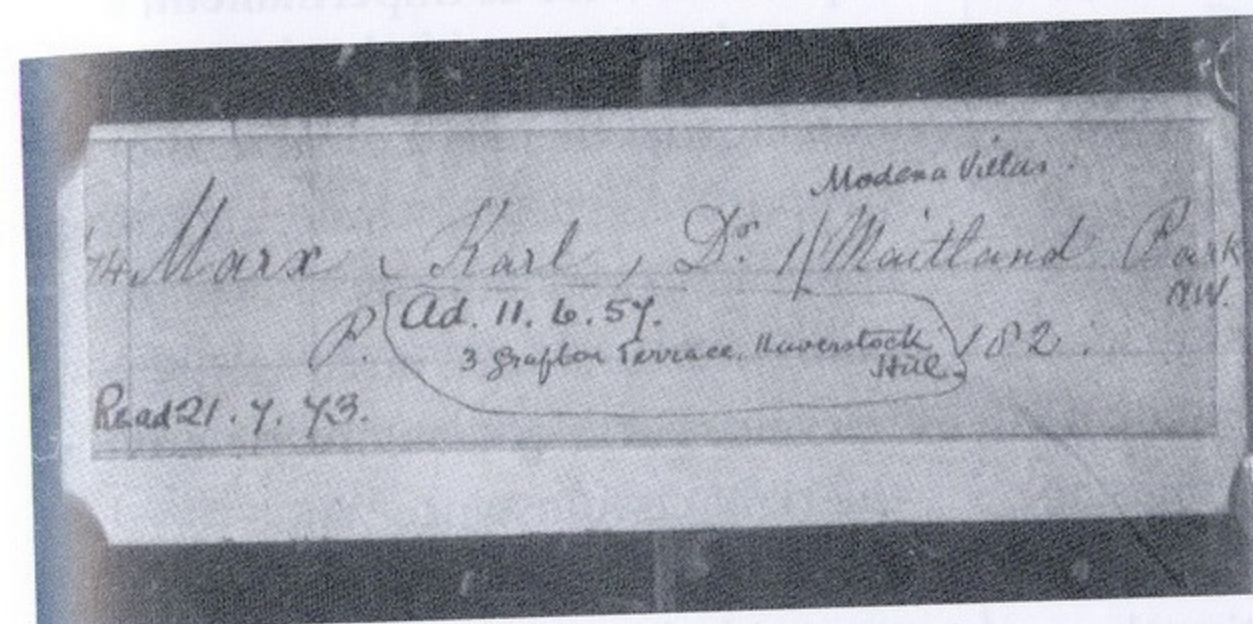 Modena Villas.
Marx, Karl, Dr. 1/ Maitland Park
N.W.
P. Ad. 11. 6. 57. 182.
3 Grafton Terrace, Haverstock
Hill.
Read 21. 7. 73.